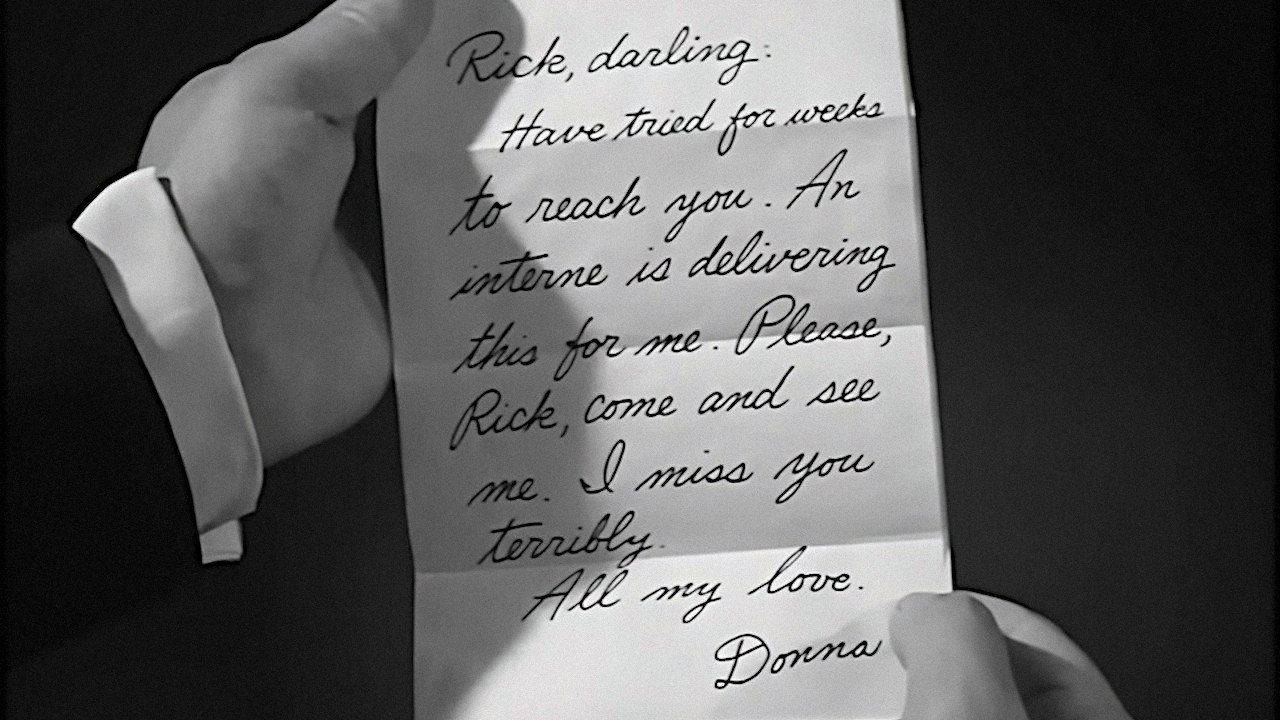 Rick, darling:
Have tried for weeks
to reach you. An
interne is delivering
this for me. Please,
Rick, come and see
me. I miss you
terribly.
All my love.
Donna